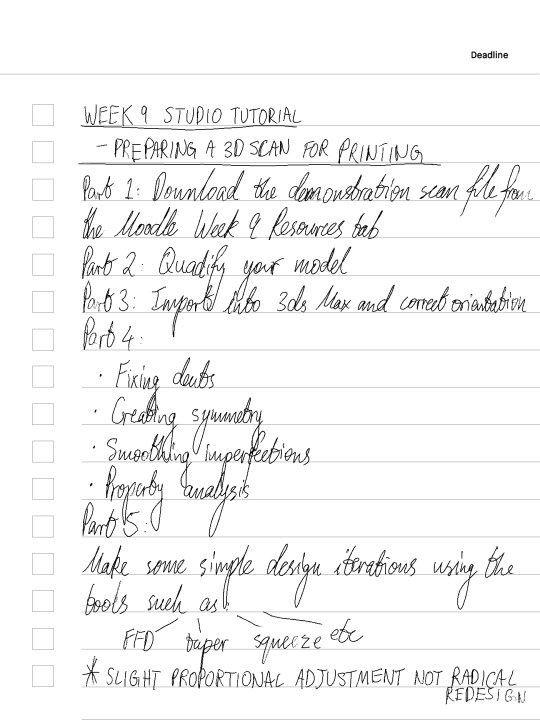 Deadline
WEEK 9 STUDIO TUTORIAL
- PREPARING A 3D SCAN FOR PRINTING
Part 1: Download the demonstration scan file from
the Moodle Week 9 Resources tab
Part 2: Quadify your model
Part 3: Import into 3ds Max and correct orientation
Part 4:
· Fixing dents
· Creating symmetry
· Smoothing imperfections
· Property analysis
Part 5:
Make some simple design iterations using the
tools such as:
FFD taper squeeze etc
* SLIGHT PROPORTIONAL ADJUSTMENT NOT RADICAL
REDESIGN